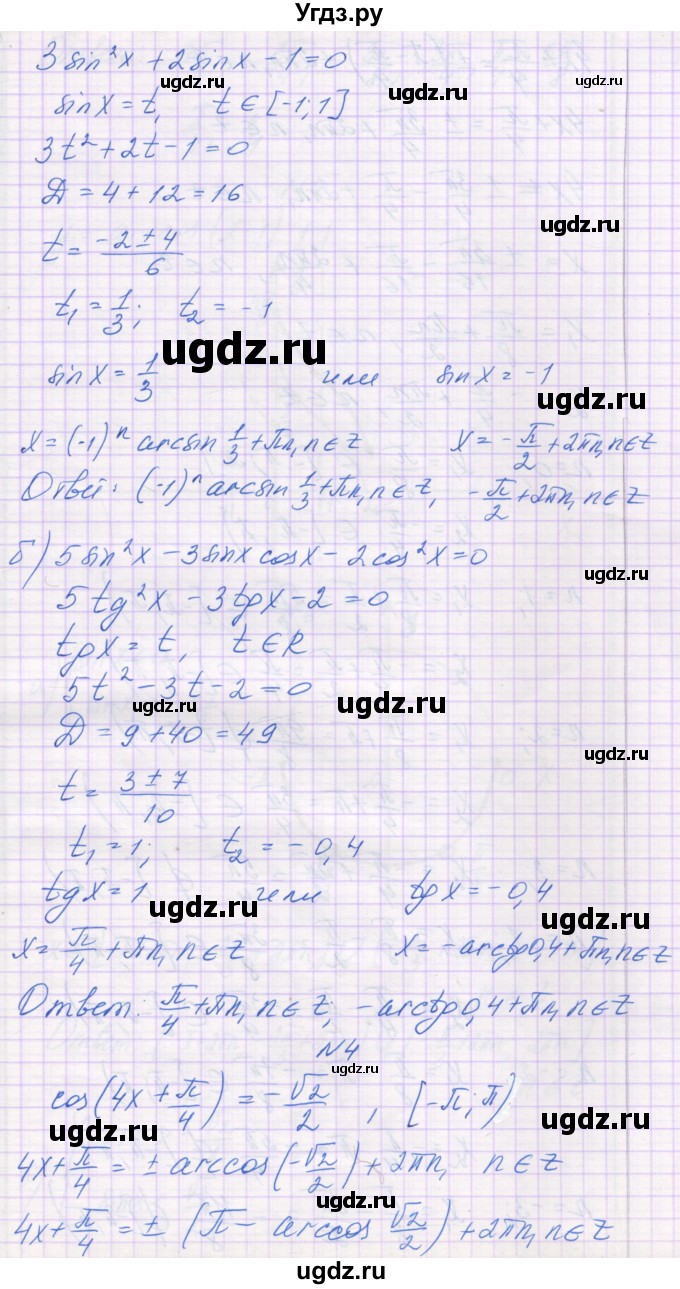 Угдз.ру
3 sin²x + 2 sin x - 1 = 0
ugdz.ru
sin x = t, t ∈ [-1; 1]
ugdz.ru
3t² + 2t - 1 = 0
Д = 4 + 12 = 16
ugdz.ru
t = (-2 ± 4)/6
t₁ = 1/3; t₂ = -1
ugdz.ru
sin x = 1/3 или sin x = -1
ugdz.ru
x = (-1)ⁿ arcsin 1/3 + πn, n ∈ Z x = -π/2 + 2πn, n ∈ Z
Ответ: (-1)ⁿ arcsin 1/3 + πn, n ∈ Z, -π/2 + 2πn, n ∈ Z
б) 5 sin²x - 3 sin x cos x - 2 cos²x = 0
ugdz.ru
5 tg²x - 3 tg x - 2 = 0
tg x = t, t ∈ R
5t² - 3t - 2 = 0
ugdz.ru ugdz.ru
Д = 9 + 40 = 49
ugdz.ru
t = (3 ± 7)/10
t₁ = 1; t₂ = -0,4
tg x = 1 или tg x = -0,4
ugdz.ru ugdz.ru
x = π/4 + πn, n ∈ Z x = -arctg 0,4 + πn, n ∈ Z
Ответ: π/4 + πn, n ∈ Z; -arctg 0,4 + πn, n ∈ Z
N4
ugdz.ru
cos(4x + π/4) = -√2/2, [-π; π)
ugdz.ru ugdz.ru
4x + π/4 = ± arccos(-√2/2) + 2πn, n ∈ Z
ugdz.ru ugdz.ru
4x + π/4 = ± (π - arccos √2/2) + 2πn, n ∈ Z
ugdz.ru